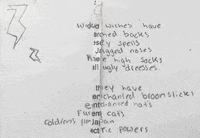 Wicked wishes have
arched backs
nasty spells
Jagged noses
have high socks
all ugly dresses.
they have
enchanted broomsticks
entertained hats
Fur cats
cauldrons for
electric powers